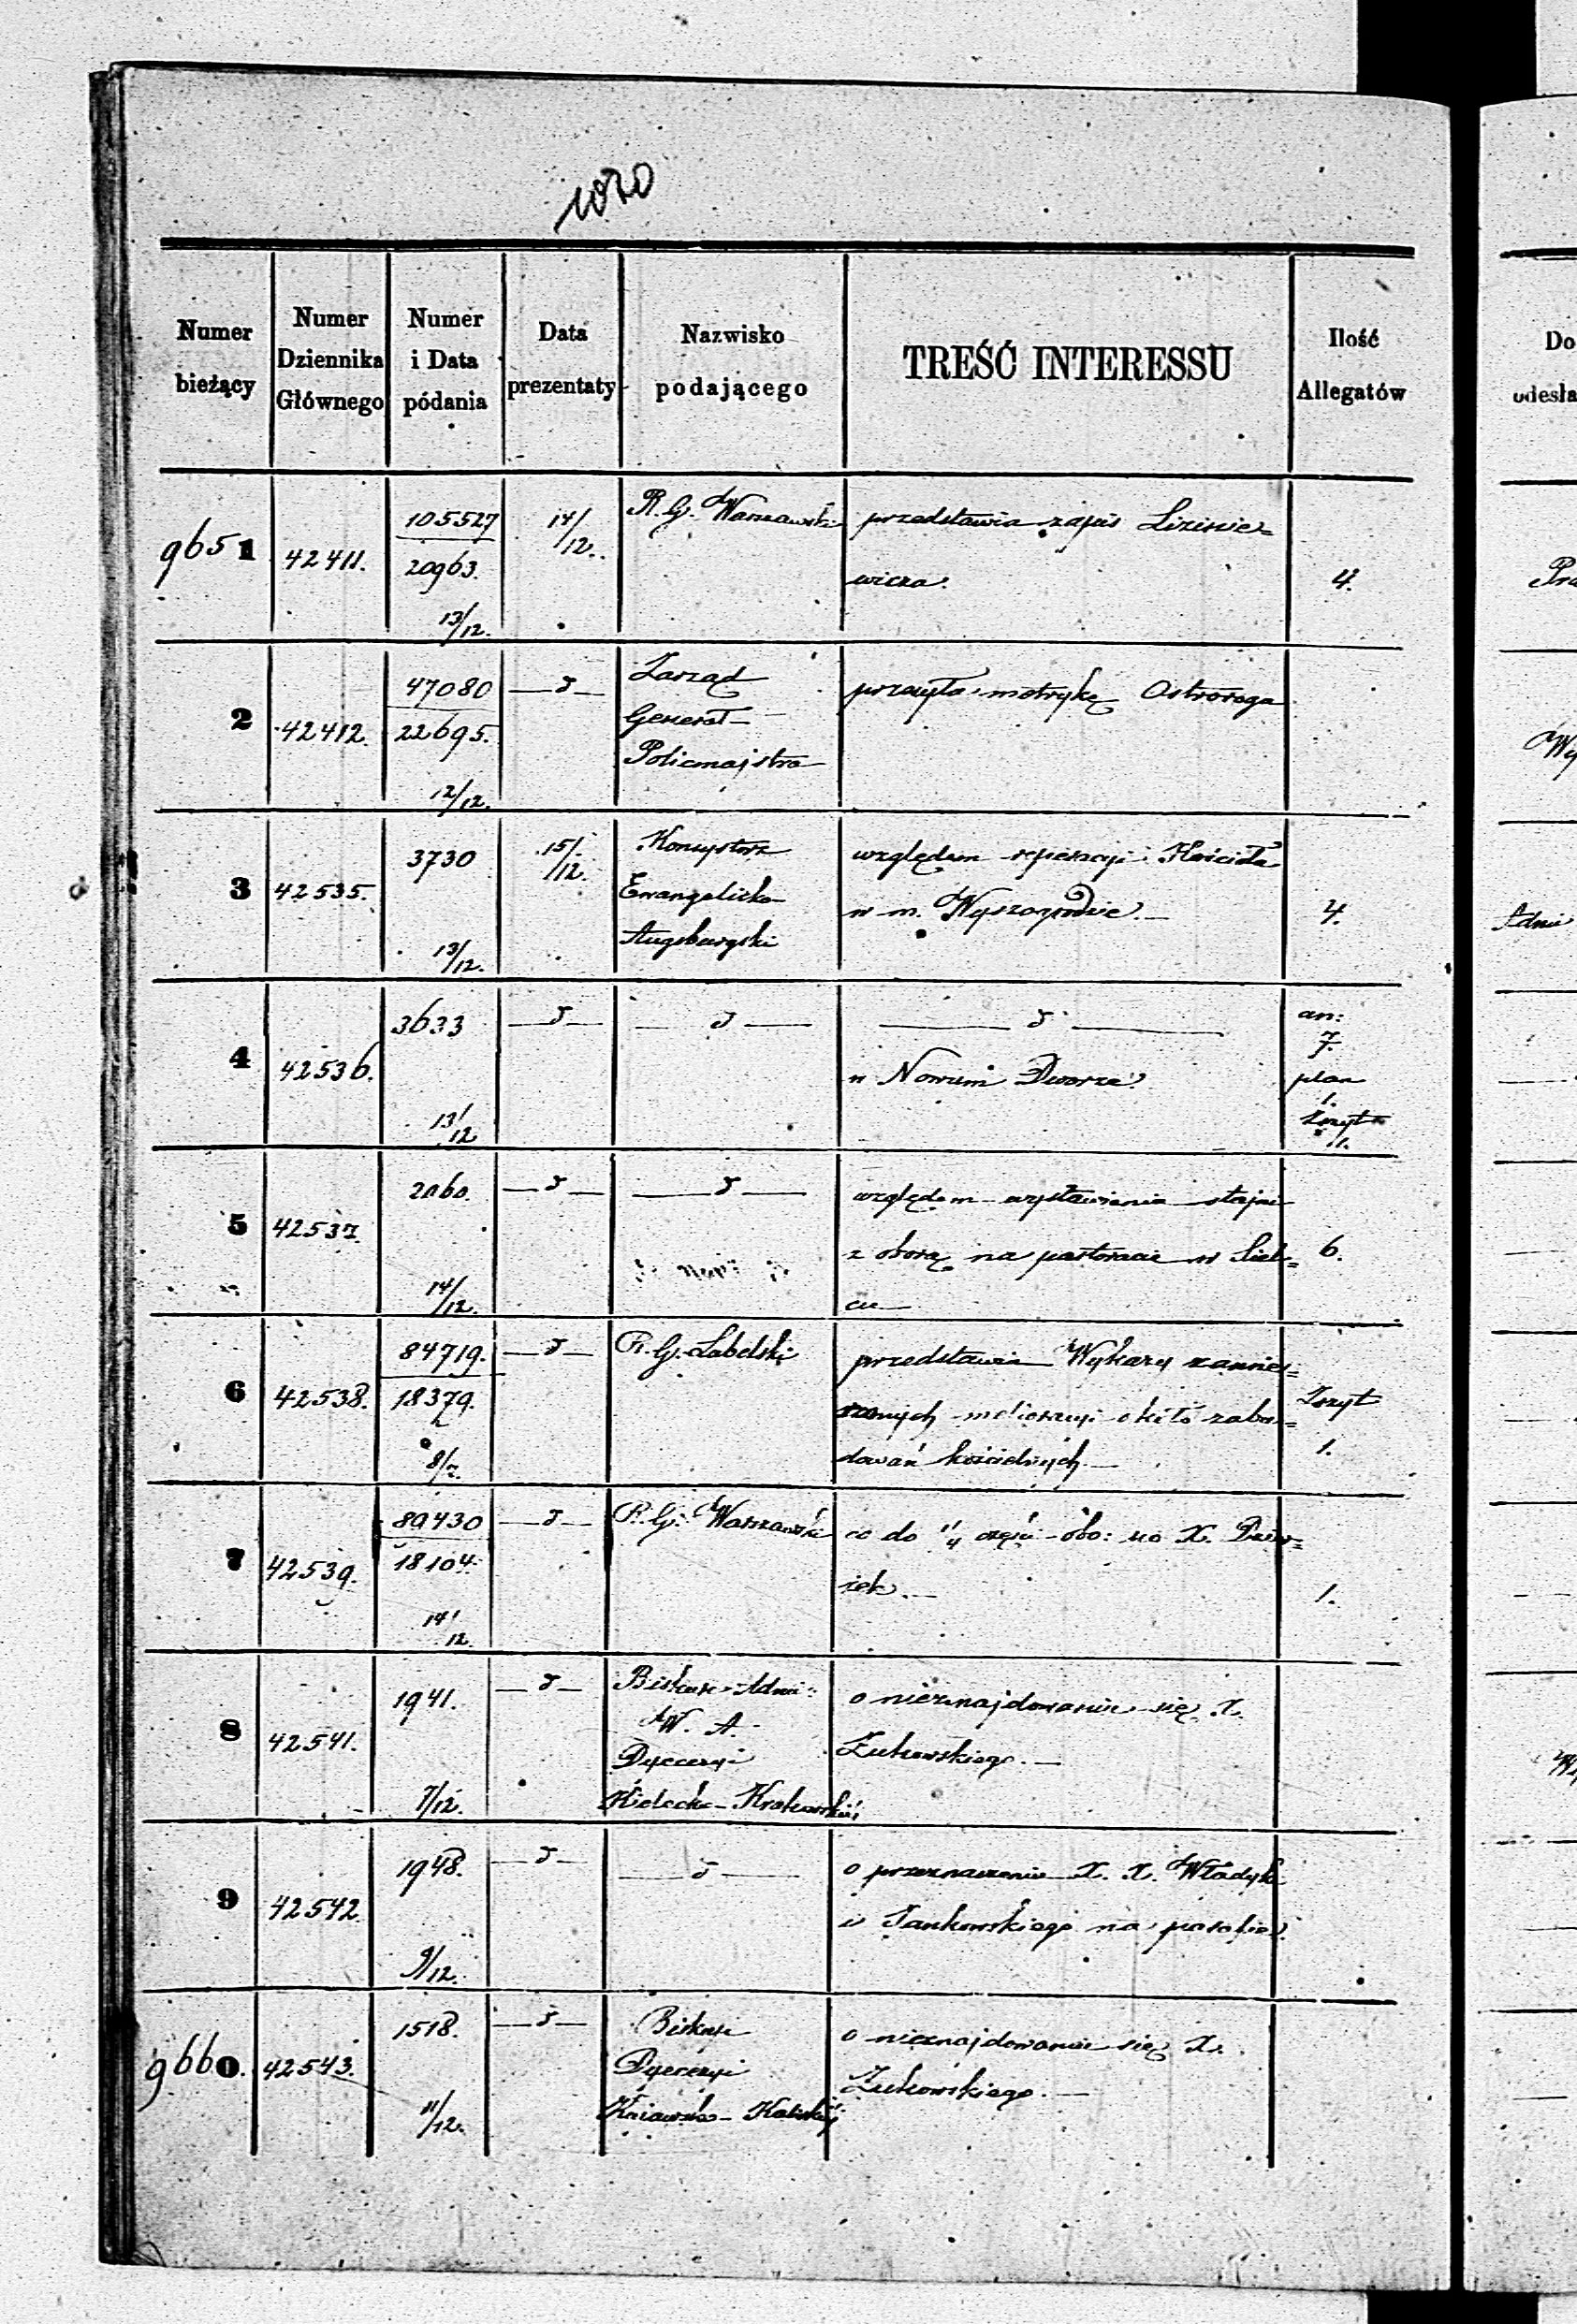 1070
Numer bieżący
Numer Dziennika Głównego
Numer i Data pódania
Data prezentaty
Nazwisko podającego
TREŚĆ INTERESSU
Ilość Allegatów
Do
odesła
9651 42411. 105527 14/12. R. G. Warszawski przedstawia zapis Lizinie=
20963. wicza. 4.
13/12.
2 42412. 47080 —d— Zarząd przesyła metrykę Ostroroga
22695. Generał-
Policmajstra
12/12.
3 42535. 3730 15/12. Konsystorz względem reperacyi Kościoła
Ewangelicko- w m. Wyszogrodzie.— 4.
Augsburgski
13/12.
4 42536. 3633 —d— —d— —d— an:
7.
w Nowym Dworze. plan
1.
13/12 Zszyt
1.
5 42537. 2060. —d— —d— względem wystawienia stajni
z oborą na pastoracie w Siel= 6.
14/12. cu—
6 42538. 84719. —d— R. G. Lubelski przedstawia Wykazy zamie=
18379. około zabu= Zszyt
8/7. dowań kościelnych.— 1.
7 42539. 89430 —d— R. G. Warszawski co do 1/4 części X.
18104. 1.
14/12
8 42541. 1941. —d— Biskup Admi: o nieznajdowaniu się X.
W. A. Żukowskiego.—
Dyecezyi
7/12. Kielecko-Krakowskiéj
9 42542. 1948. —d— —d— o przeznaczenie X. X. Władyki
i Jankowskiego na parafie.
9/12.
9660. 42543. 1518. —d— Biskup o nieznajdowaniu się X.
Dyecezyi Żukowskiego.—
11/12. Kujawsko-Kaliskiéj